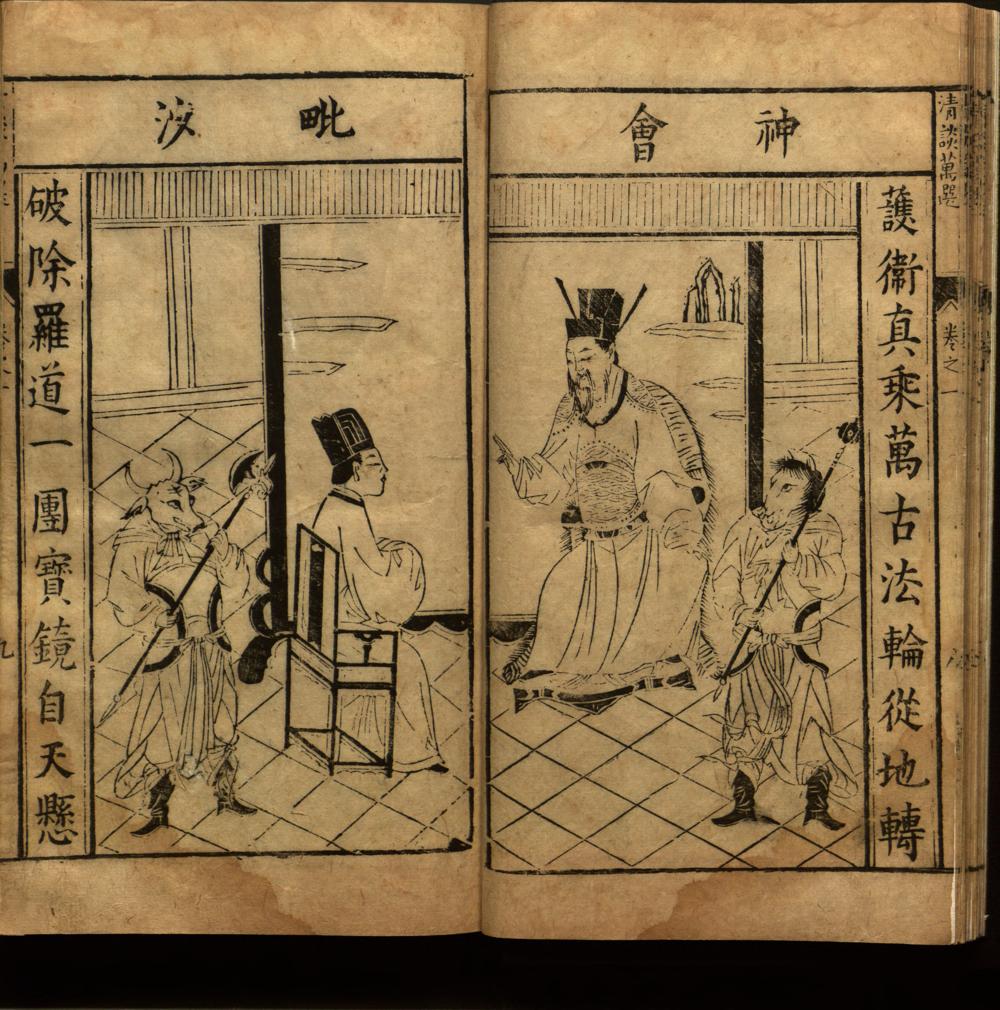 清談萬選
卷之一
神會
䕶衛真乘萬古法輪從地轉
毗
破除羅道一團寶鏡自天懸
九